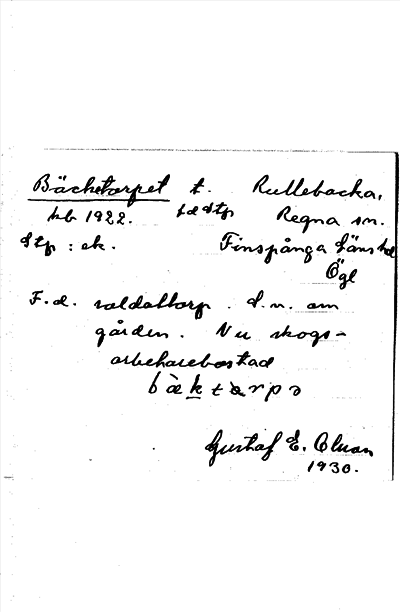 Bäcketorpet t. Rullebacka,
kb 1922. f d Stp Regna sn.
Stp : ek. Finspånga läns hd
Ögl
F.d. soldattorp. S.n. om
gården. Nu skogs-
arbetarebostad
bäktàrpə
Gustaf E. Olsson
1930.